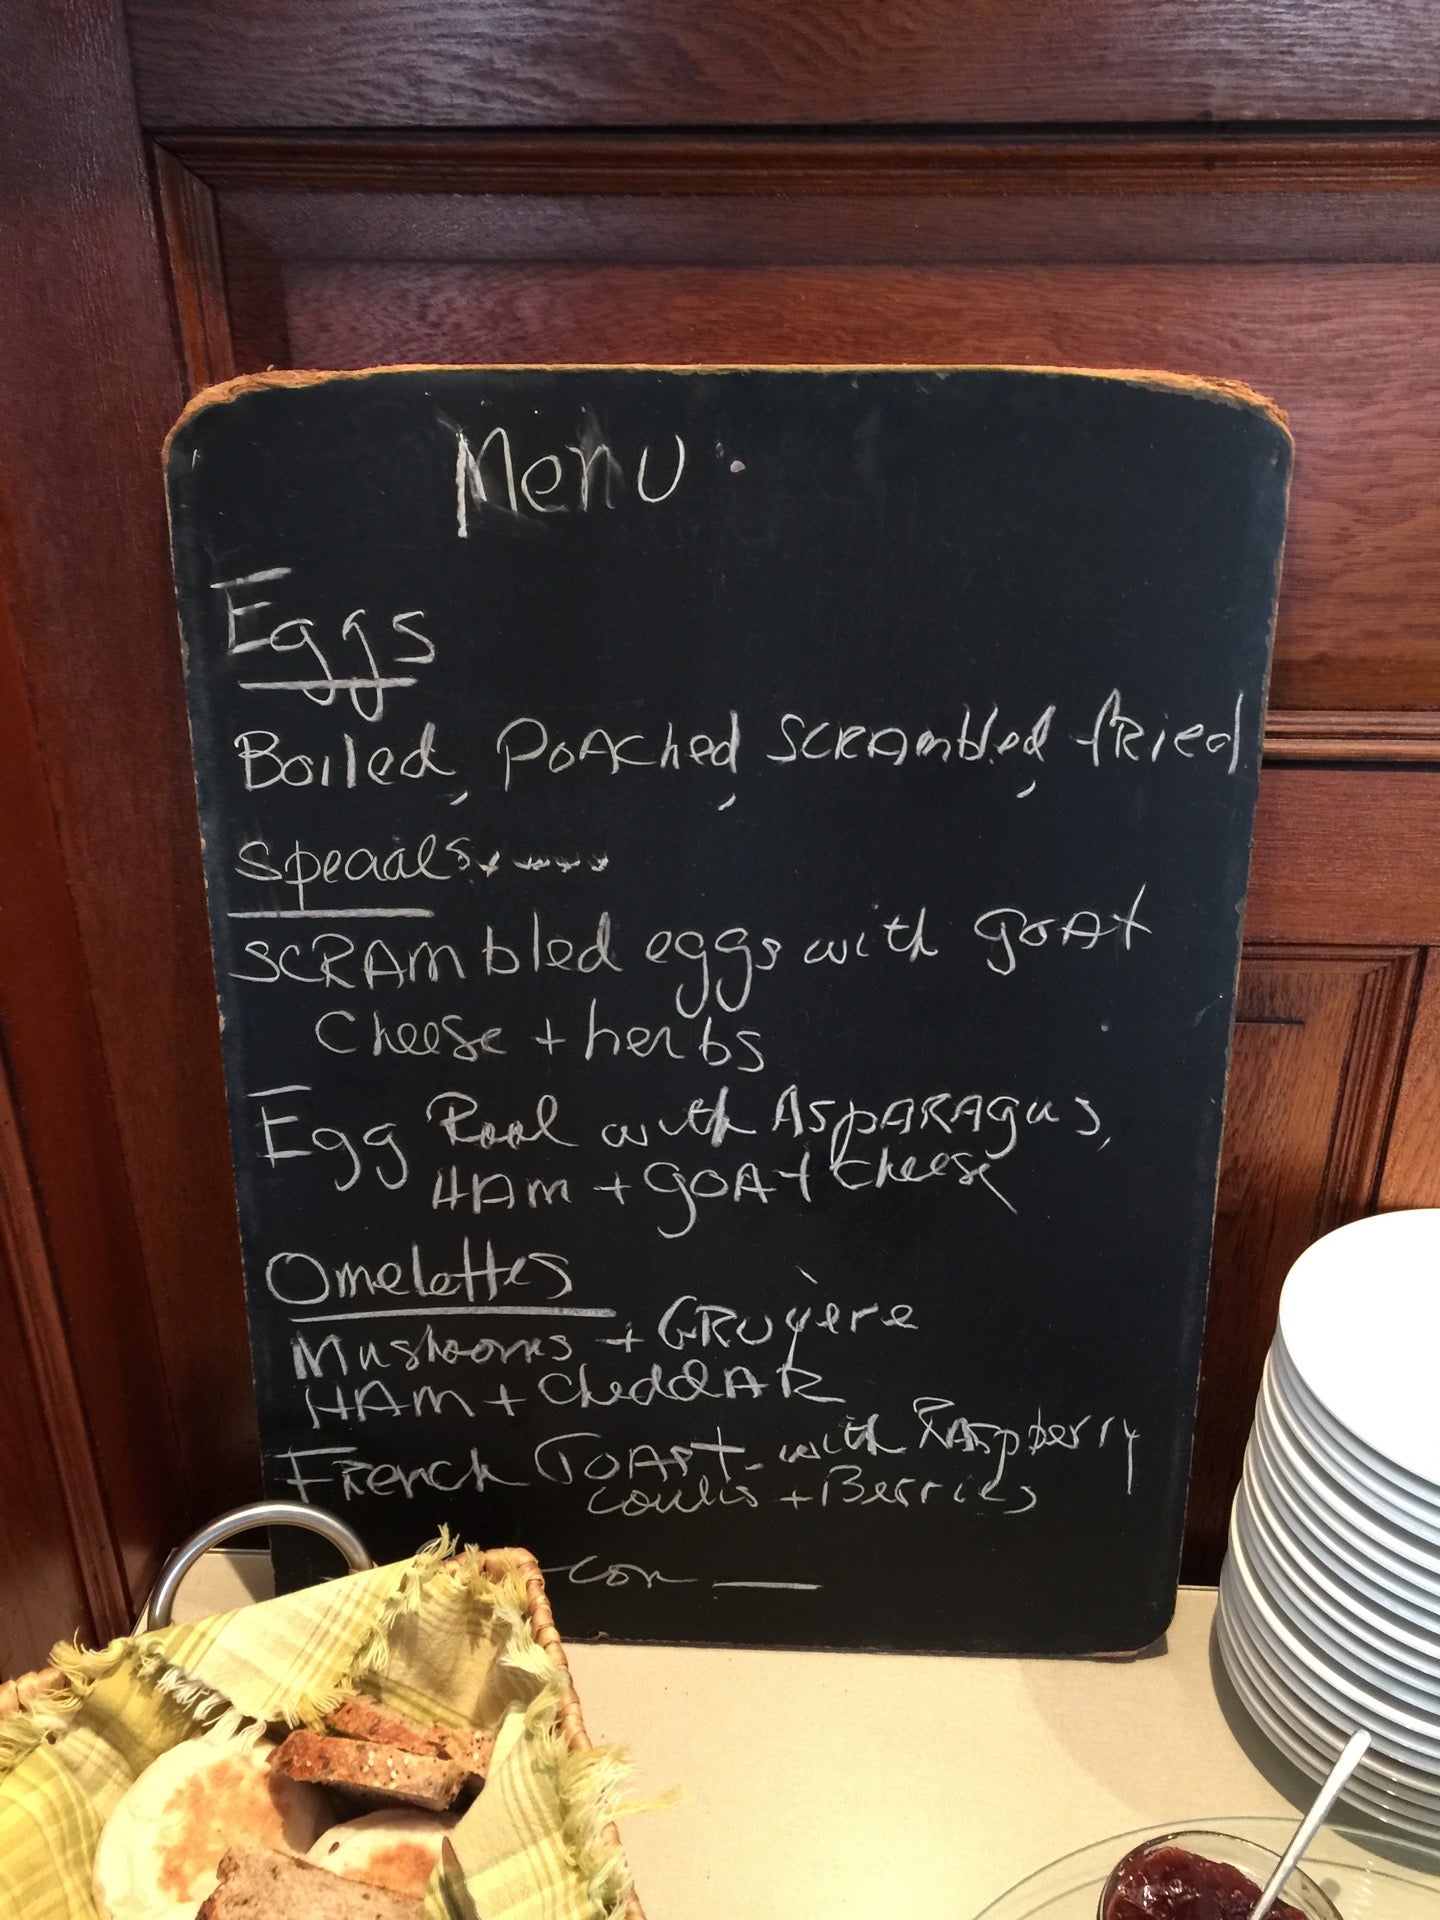 Menu.
Eggs
Boiled, Poached, Scrambled, fried
Specials.....
Scrambled eggs with goat
Cheese + herbs
Egg Rool with Asparagus,
Ham + goat cheese
Omelettes
Mushrooms + Gruyère
Ham + Cheddar
French Toast - with Raspberry
coulis + Berries